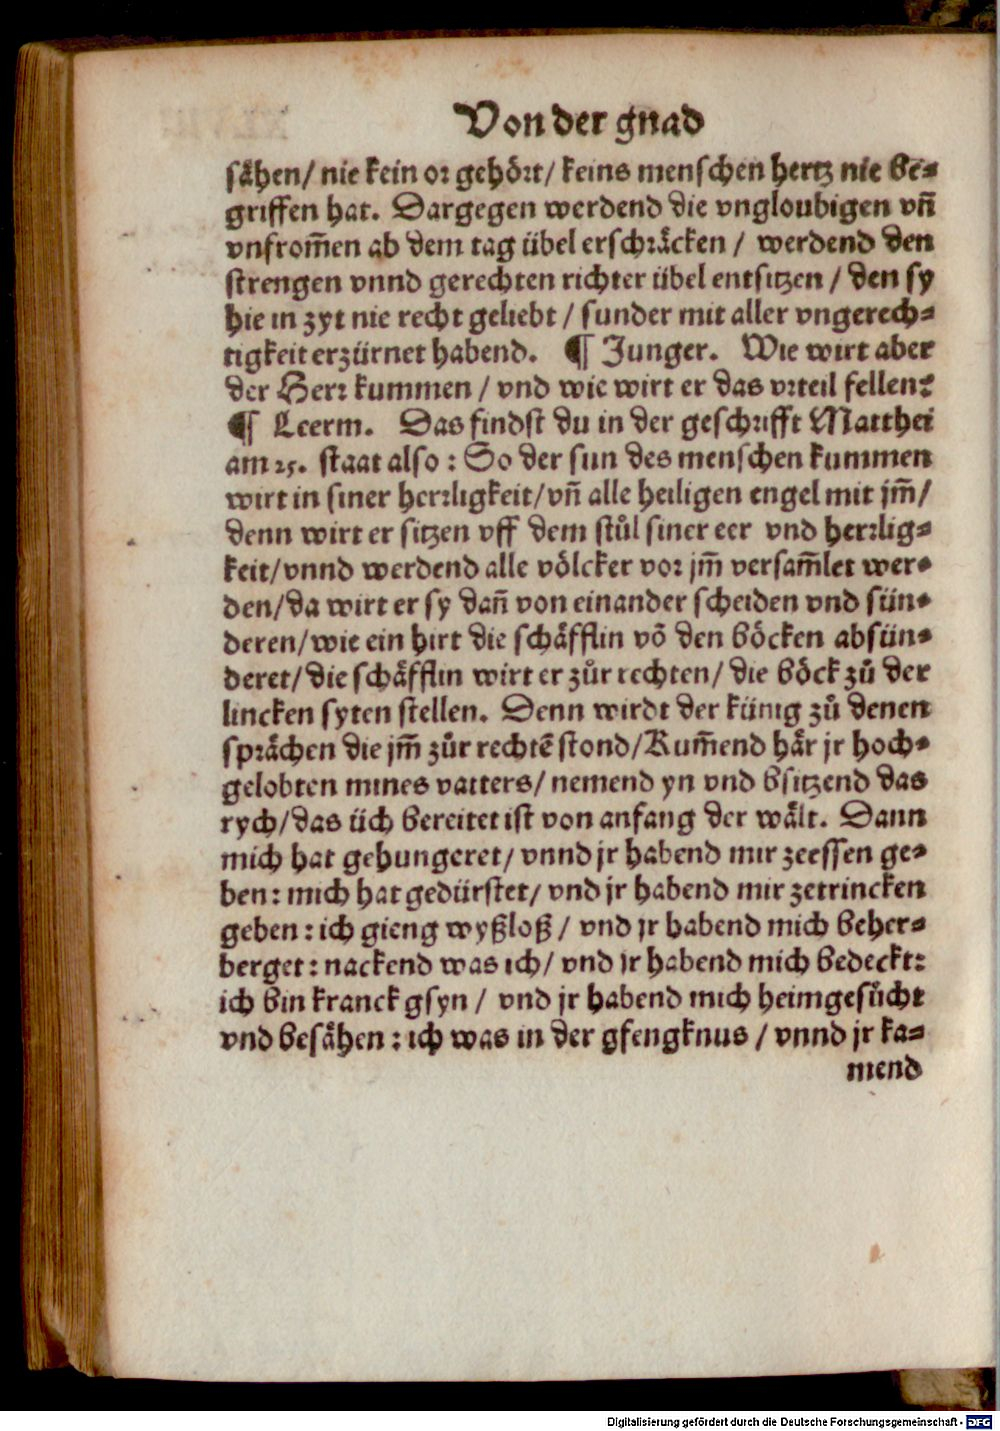 Von der gnad
såhen/ nie kein or gehört/ keins menschen hertz nie be-
griffen hat. Dargegen werdend die vngloubigen vñ
vnfrom̃en ab dem tag übel erschräcken / werdend den
strengen vnnd gerechten richter übel entsitzen / den sy
hie in zyt nie recht geliebt / sunder mit aller vngerech-
tigkeit erzürnet habend. ¶ Junger. Wie wirt aber
der Herr kummen / vnd wie wirt er das vrteil fellen?
¶ Leerm. Das findst du in der geschrifft Matthei
am 25. staat also : So der sun des menschen kummen
wirt in siner herrligkeit/vñ alle heiligen engel mit jm̃/
denn wirt er sitzen vff dem stůl siner eer vnd herrlig-
keit/vnnd werdend alle völcker vor jm̃ versam̃let wer-
den/da wirt er sy dañ von einander scheiden vnd sün-
deren/wie ein hirt die schäfflin võ den böcken absün-
deret/die schäfflin wirt er zůr rechten/ die böck zů der
lincken syten stellen. Denn wirdt der künig zů denen
sprächen die jm̃ zůr rechtẽ stond/Kum̃end här jr hoch-
gelobten mines vatters/ nemend yn vnd bsitzend das
rych/das üch bereitet ist von anfang der wält. Dann
mich hat gehungeret/ vnnd jr habend mir zeessen ge-
ben: mich hat gedürstet/ vnd jr habend mir zetrincken
geben : ich gieng wyßloß / vnd jr habend mich beher-
berget: nackend was ich/ vnd jr habend mich bedeckt:
ich bin kranck gsyn / vnd jr habend mich heimgesůcht
vnd besåhen : ich was in der gfengknus / vnnd jr ka-
mend
Digitalisierung gefördert durch die Deutsche Forschungsgemeinschaft - DFG